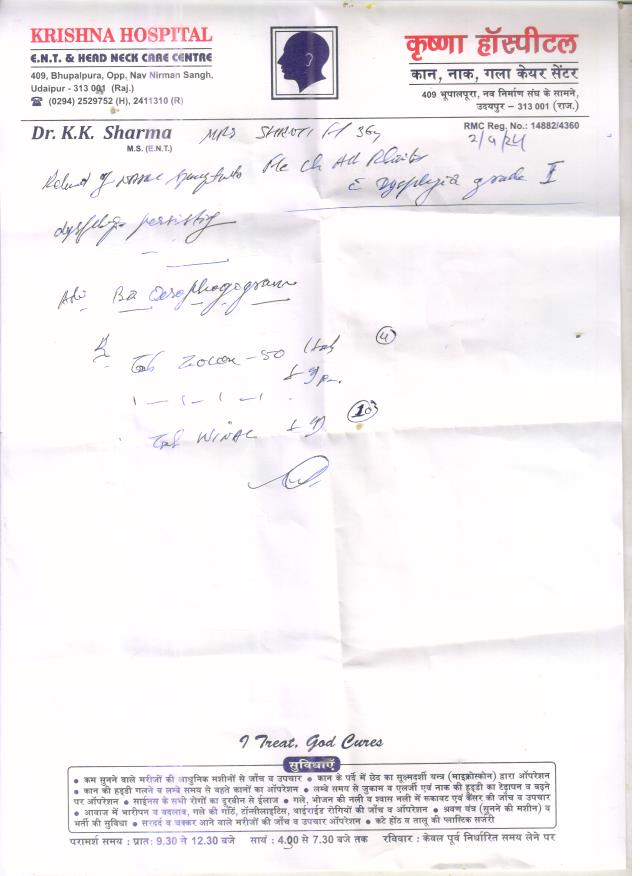 KRISHNA HOSPITAL
E.N.T. & HEAD NECK CARE CENTRE
409, Bhupalpura, Opp. Nav Nirman Sangh,
Udaipur - 313 001 (Raj.)
☎ (0294) 2529752 (H), 2411310 (R)
कृष्णा हॉस्पीटल
कान, नाक, गला केयर सेंटर
409 भूपालपूरा, नव निर्माण संघ के सामने,
उदयपुर – 313 001 (राज.)
Dr. K.K. Sharma
M.S. (E.N.T.)
RMC Reg. No.: 14882/4360
MRS SHRUTI
of nasal
Dysphagia grade I
persisting
Ba Oesophagogram
Tab - 50
Tab WINAC
I Treat, God Cures
सुविधाएँ
● कम सुनने वाले मरीजों की आधुनिक मशीनों से जाँच व उपचार ● कान के पर्दे में छेद का सूक्ष्मदर्शी यन्त्र (माइक्रोस्कोप) द्वारा ऑपरेशन
● कान की हड्डी गलने व लम्बे समय से बहते कानों का ऑपरेशन ● लम्बे समय से जुकाम व एलर्जी एवं नाक की हड्डी का टेढ़ापन व बढ़ने
पर ऑपरेशन ● साईनस के सभी रोगों का दूरबीन से ईलाज ● गले, भोजन की नली व श्वास नली में रूकावट एवं कैंसर की जाँच व उपचार
● आवाज में भारीपन व बदलाव, गले की गाँठें, टॉन्सीलाइटिस, थाईराईड रोगियों की जाँच व ऑपरेशन ● श्रवण यंत्र (सुनने की मशीन) व
भर्ती की सुविधा ● सरदर्द व चक्कर आने वाले मरीजों की जाँच व उपचार ऑपरेशन ● कटे होंठ व तालू की प्लास्टिक सर्जरी
परामर्श समय : प्रातः 9.30 से 12.30 बजे सायं : 4.30 से 7.30 बजे तक रविवार : केवल पूर्व निर्धारित समय लेने पर